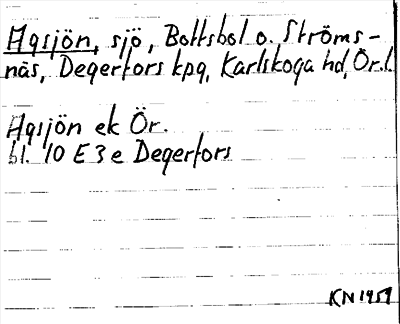 Agsjön, sjö, Bottsbol o. Ströms-
näs, Degerfors kpg, Karlskoga hd, Ör.l.
Agsjön ek Ör.
bl. 10 E 3 e Degerfors
KN 1959